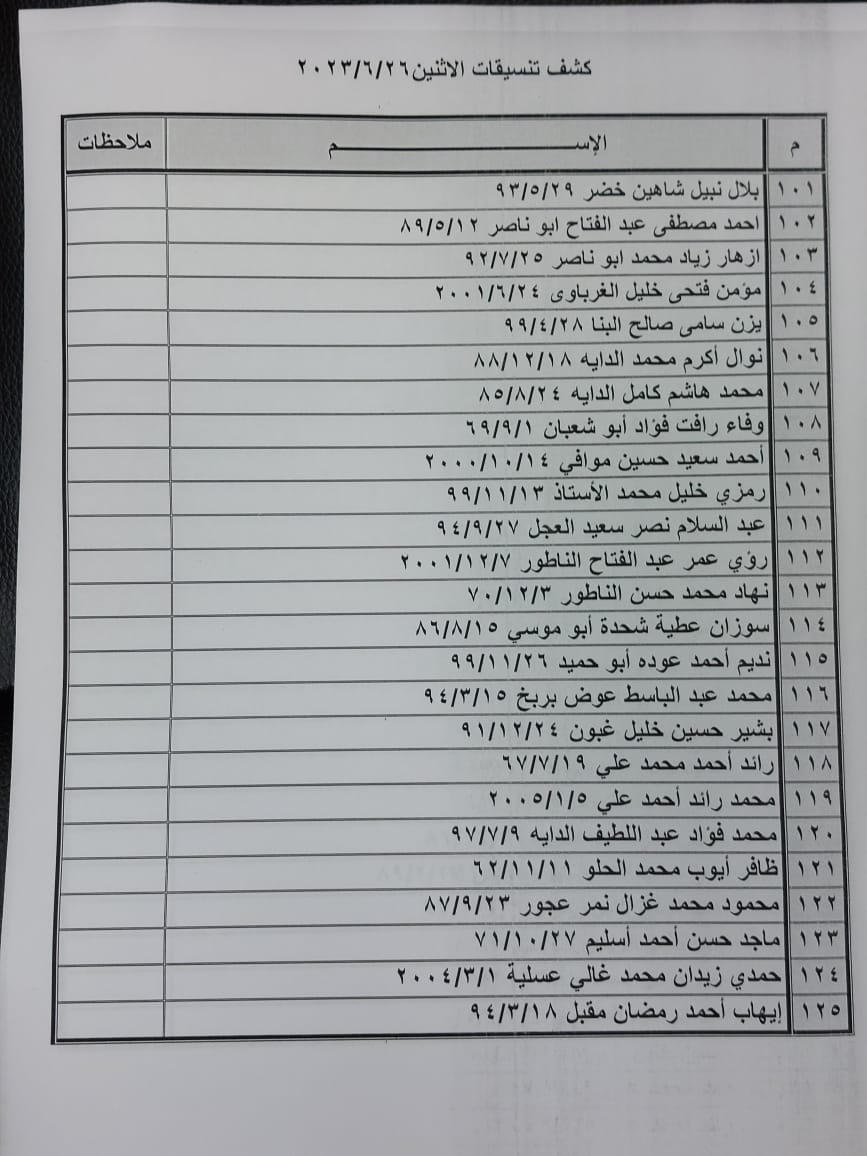 كشف تنسيقات الاثنين ٢٠٢٣/٦/٢٦
م الإســـــــــــــــــــم ملاحظات
١٠١ بلال نبيل شاهين خضر ٩٣/٥/٢٩
١٠٢ احمد مصطفى عبد الفتاح ابو ناصر ٨٩/٥/١٢
١٠٣ ازهار زياد محمد ابو ناصر ٩٢/٧/٢٥
١٠٤ مؤمن فتحى خليل الغرباوى ٢٠٠١/٦/٢٤
١٠٥ يزن سامى صالح البنا ٩٩/٤/٢٨
١٠٦ نوال أكرم محمد الدايه ٨٨/١٢/١٨
١٠٧ محمد هاشم كامل الدايه ٨٥/٨/٢٤
١٠٨ وفاء رافت فؤاد أبو شعبان ٦٩/٩/١
١٠٩ أحمد سعيد حسين موافي ٢٠٠٠/١٠/١٤
١١٠ رمزي خليل محمد الأستاذ ٩٩/١١/١٣
١١١ عبد السلام نصر سعيد العجل ٩٤/٩/٢٧
١١٢ رؤي عمر عبد الفتاح الناطور ٢٠٠١/١٢/٧
١١٣ نهاد محمد حسن الناطور ٧٠/١٢/٣
١١٤ سوزان عطية شحدة أبو موسي ٨٦/٨/١٥
١١٥ نديم أحمد عوده أبو حميد ٩٩/١١/٢٦
١١٦ محمد عبد الباسط عوض بربخ ٩٤/٣/١٥
١١٧ بشير حسين خليل غبون ٩١/١٢/٢٤
١١٨ رائد أحمد محمد علي ٦٧/٧/١٩
١١٩ محمد رائد أحمد علي ٢٠٠٥/١/٥
١٢٠ محمد فؤاد عبد اللطيف الدايه ٩٧/٧/٩
١٢١ ظافر أيوب محمد الحلو ٦٢/١١/١١
١٢٢ محمود محمد غزال نمر عجور ٨٧/٩/٢٣
١٢٣ ماجد حسن أحمد أسليم ٧١/١٠/٢٧
١٢٤ حمدي زيدان محمد غالي عسلية ٢٠٠٤/٣/١
١٢٥ إيهاب أحمد رمضان مقبل ٩٤/٣/١٨